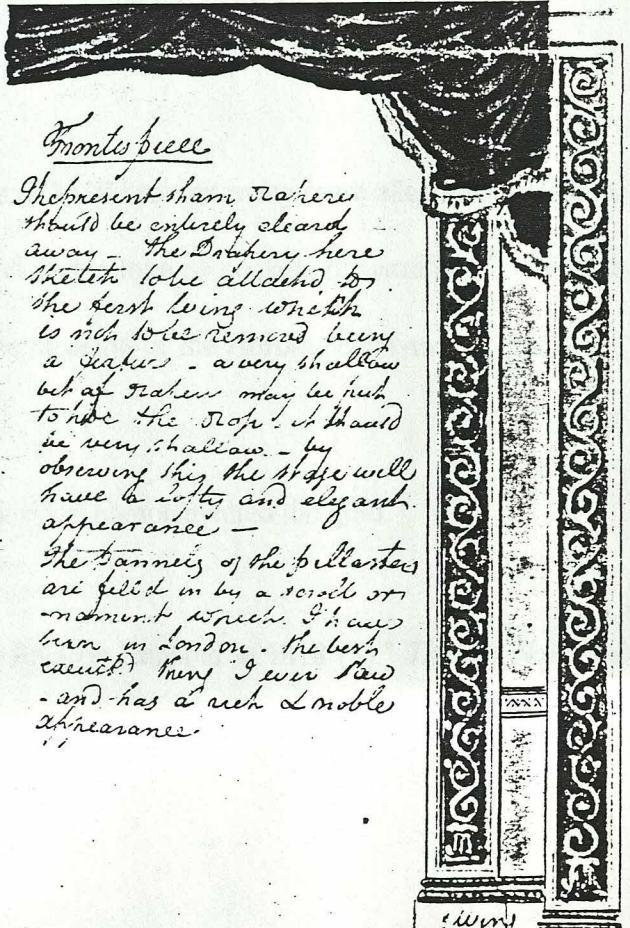 Frontispiece
The present sham drapery
should be entirely cleared
away - the Drapery here
sketch to be attached to
the first wing which
is not to be removed being
a - a very shallow
bit of drapery may be put
to the drop - it should
be very shallow - by
observing this the stage will
have a lofty and elegant
appearance -
The pannels of the pillasters
are filled in by a scroll or
-nament which I have
seen in London - the best
executed thing I ever saw
- and has a rich & noble
appearance.
wing